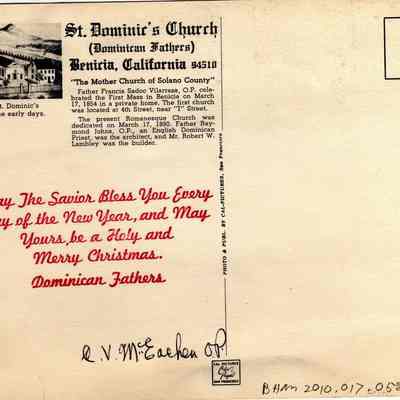 St. Dominic's Church
(Dominican Fathers)
Benicia, California 94510
"The Mother Church of Solano County"
Father Francis Sadoc Vilarrasa, O.P. cele-
brated the First Mass in Benicia on March
17, 1854 in a private home. The first church
was located at 4th Street, near "I" Street.
The present Romanesque Church was
dedicated on March 17, 1890. Father Ray-
mond Johns, O.P., an English Dominican
Priest, was the architect, and Mr. Robert W.
Lambley was the builder.
t. Dominic's
e early days.
ay The Savior Bless You Every
ay of the New Year, and May
Yours, be a Holy and
Merry Christmas.
Dominican Fathers
PHOTO & PUBL. BY CAL-PICTURES, San Francisco
C. V. McEachen OP.
CAL PICTURES
SAN FRANCISCO
BHM 2010.017.058